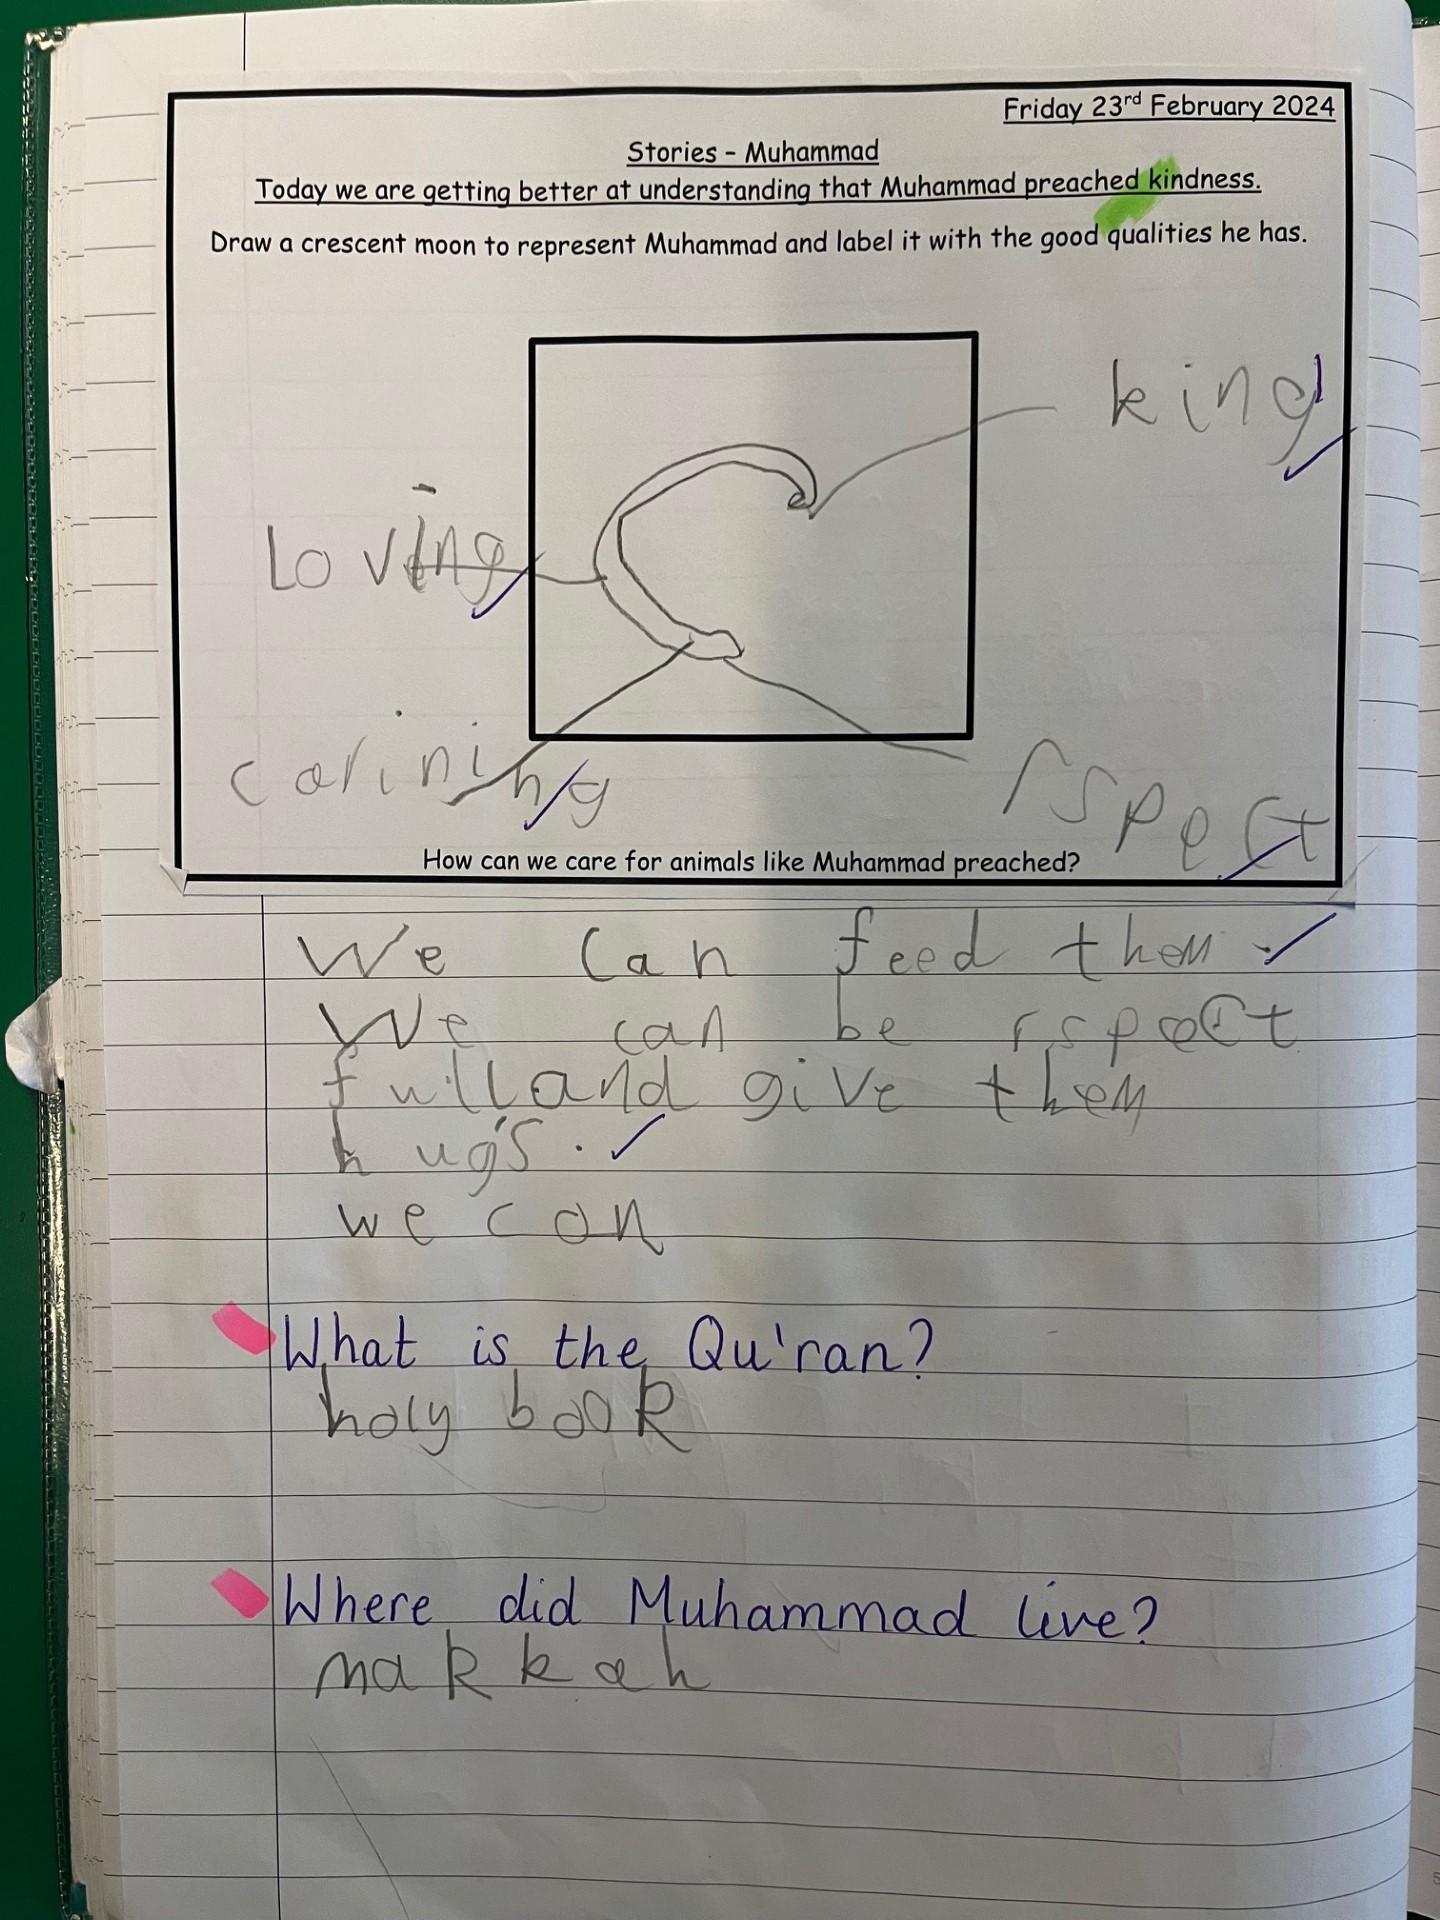 Friday 23rd February 2024
Stories - Muhammad
Today we are getting better at understanding that Muhammad preached kindness.
Draw a crescent moon to represent Muhammad and label it with the good qualities he has.
kind
Loving
carining
rspect
How can we care for animals like Muhammad preached?
We can feed them.
We can be rspect
full and give them
hug's.
we can
What is the Qu'ran?
holy book
Where did Muhammad live?
makkah